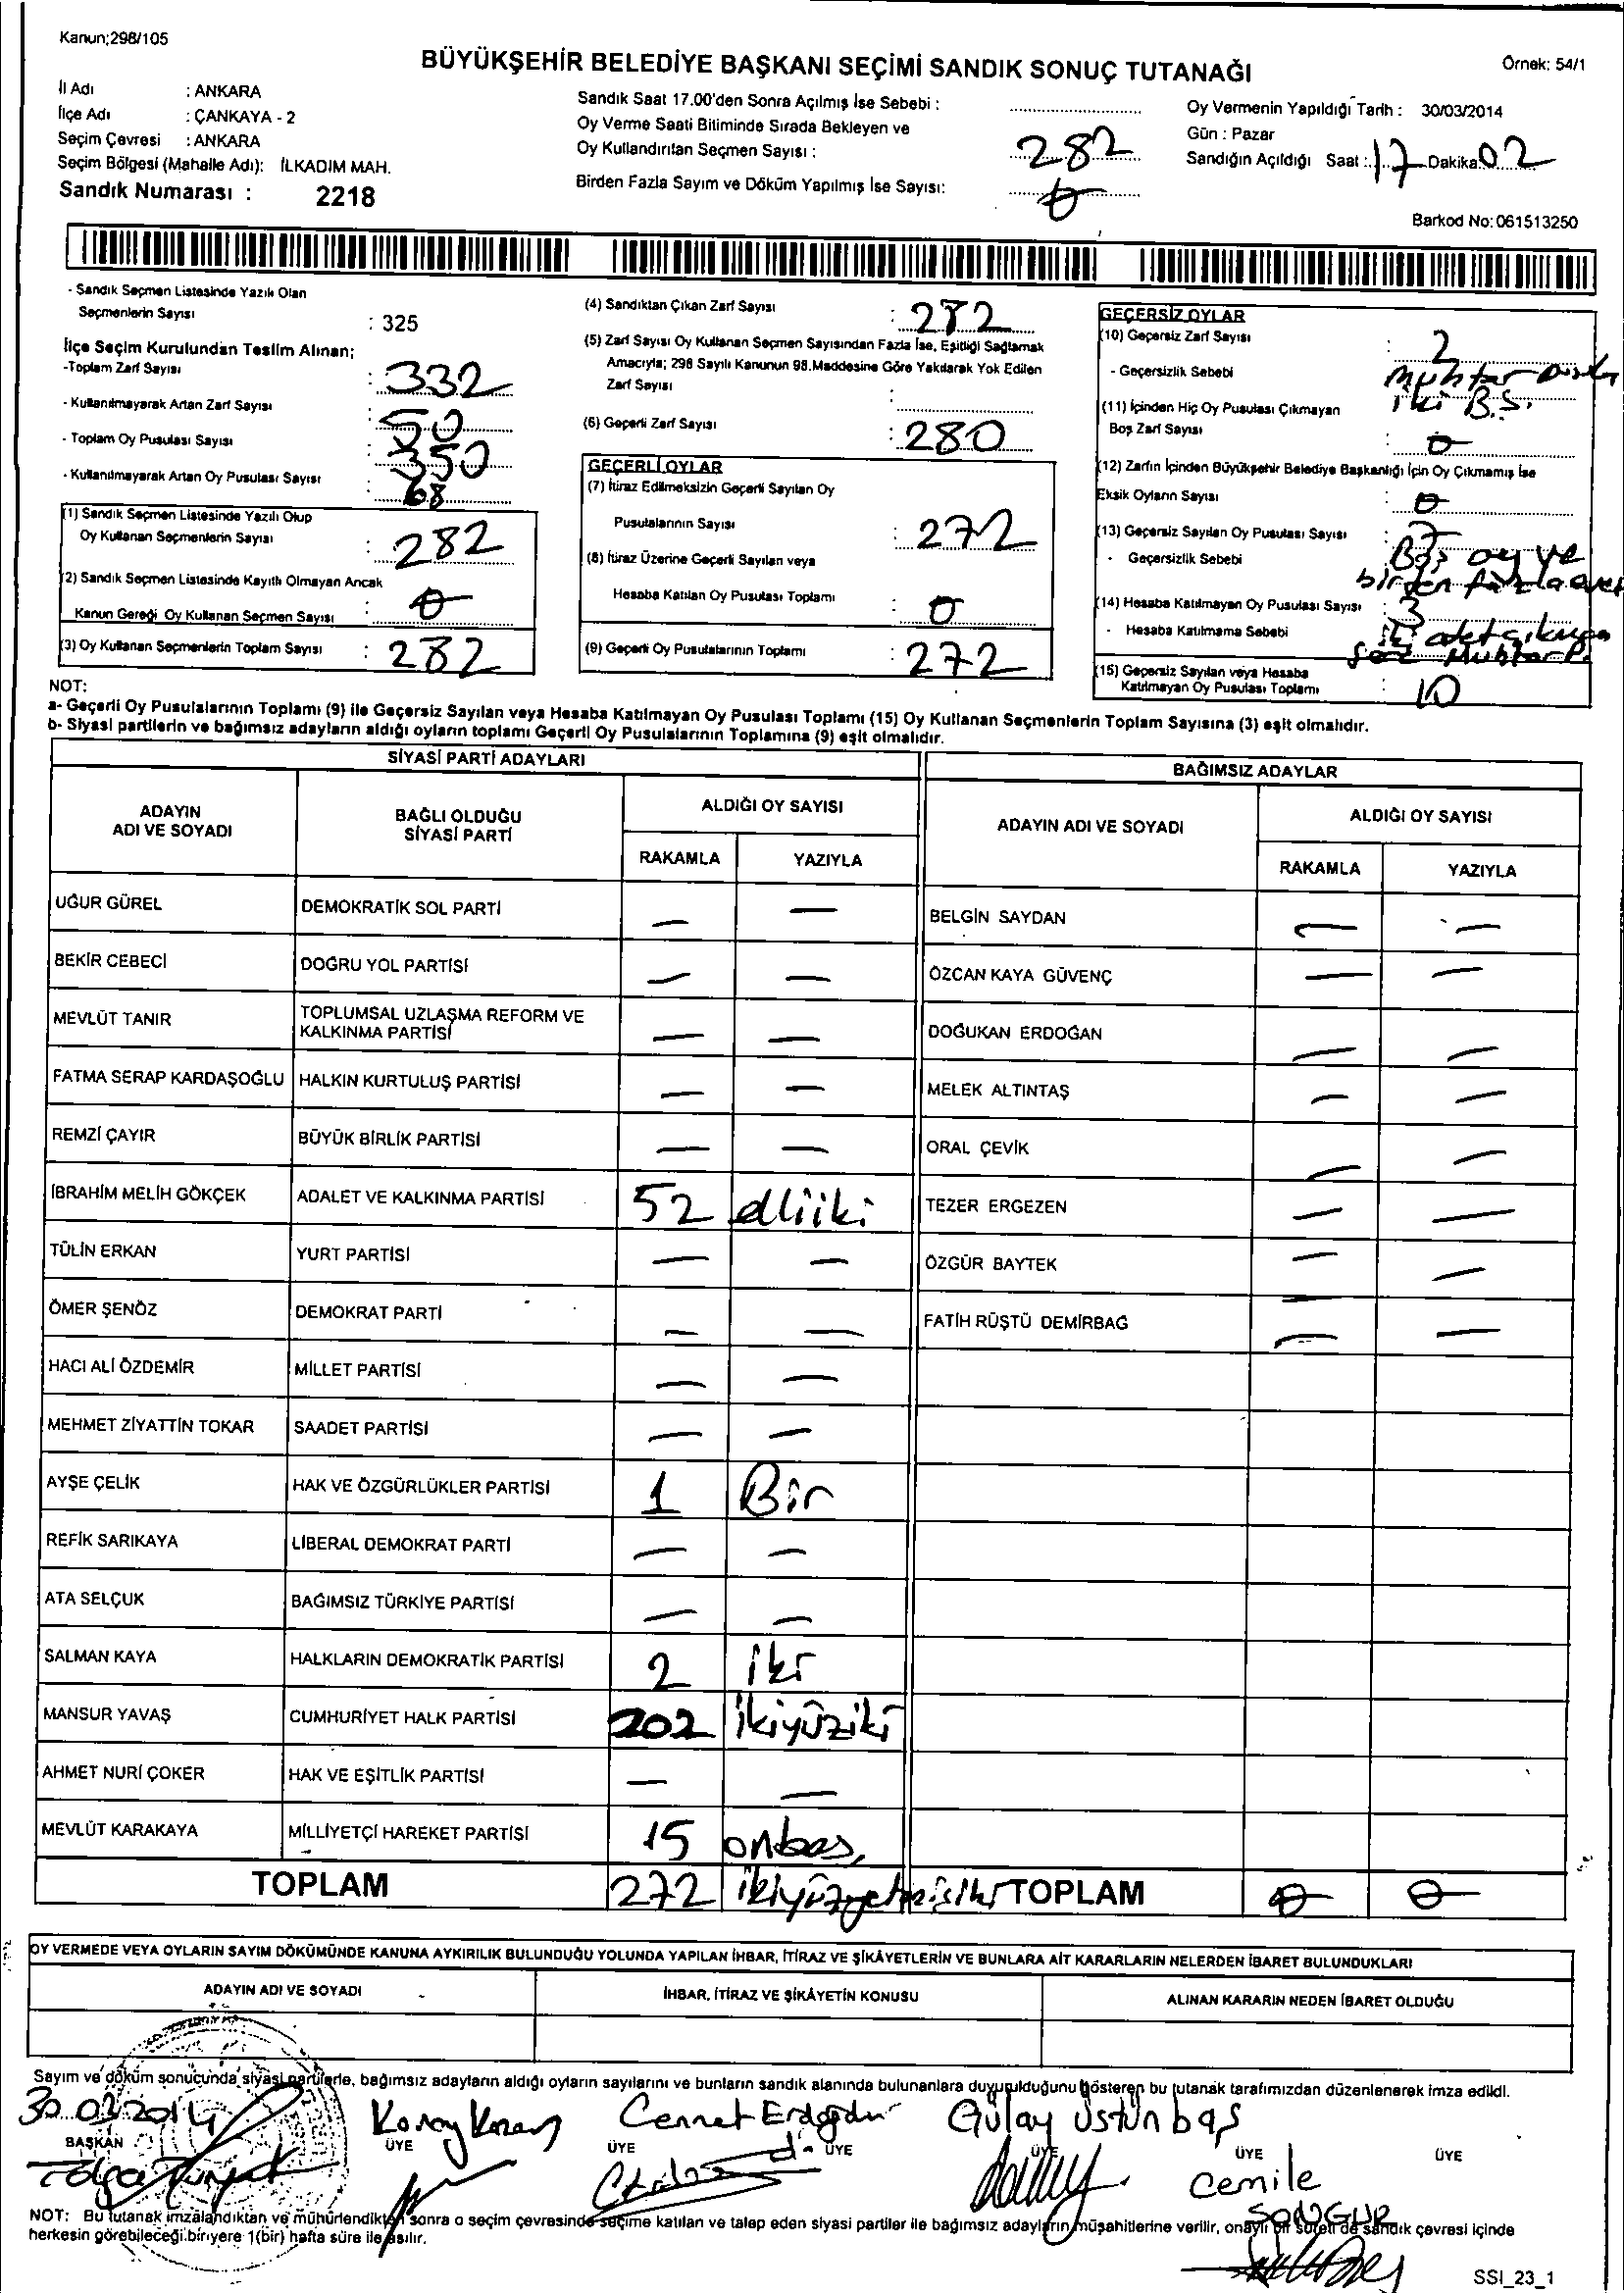 Kanun;298/105
BÜYÜKŞEHİR BELEDİYE BAŞKANI SEÇİMİ SANDIK SONUÇ TUTANAĞI
Örnek: 54/1
İl Adı : ANKARA
İlçe Adı : ÇANKAYA - 2
Seçim Çevresi : ANKARA
Seçim Bölgesi (Mahalle Adı): İLKADIM MAH.
Sandık Numarası : 2218
Sandık Saat 17.00'den Sonra Açılmış İse Sebebi :
Oy Verme Saati Bitiminde Sırada Bekleyen ve
Oy Kullandırılan Seçmen Sayısı : 282
Birden Fazla Sayım ve Döküm Yapılmış İse Sayısı: 0
Oy Vermenin Yapıldığı Tarih : 30/03/2014
Gün : Pazar
Sandığın Açıldığı Saat : 17 Dakika 02
Barkod No: 061513250
- Sandık Seçmen Listesinde Yazılı Olan
Seçmenlerin Sayısı : 325
İlçe Seçim Kurulundan Teslim Alınan;
-Toplam Zarf Sayısı : 332
- Kullanılmayarak Artan Zarf Sayısı : 50
- Toplam Oy Pusulası Sayısı : 350
- Kullanılmayarak Artan Oy Pusulası Sayısı : 68
(1) Sandık Seçmen Listesinde Yazılı Olup
Oy Kullanan Seçmenlerin Sayısı : 282
(2) Sandık Seçmen Listesinde Kayıtlı Olmayan Ancak
Kanun Gereği Oy Kullanan Seçmen Sayısı : 0
(3) Oy Kullanan Seçmenlerin Toplam Sayısı : 282
(4) Sandıktan Çıkan Zarf Sayısı : 282
(5) Zarf Sayısı Oy Kullanan Seçmen Sayısından Fazla İse, Eşitliği Sağlamak
Amacıyla; 298 Sayılı Kanunun 98.Maddesine Göre Yakılarak Yok Edilen
Zarf Sayısı :
(6) Geçerli Zarf Sayısı : 280
GEÇERLİ OYLAR
(7) İtiraz Edilmeksizin Geçerli Sayılan Oy
Pusulalarının Sayısı : 272
(8) İtiraz Üzerine Geçerli Sayılan veya
Hesaba Katılan Oy Pusulası Toplamı : 0
(9) Geçerli Oy Pusulalarının Toplamı : 272
GEÇERSİZ OYLAR
(10) Geçersiz Zarf Sayısı : 2
- Geçersizlik Sebebi Muhtar
iki B.S.
(11) İçinden Hiç Oy Pusulası Çıkmayan
Boş Zarf Sayısı : 0
(12) Zarfın İçinden Büyükşehir Belediye Başkanlığı İçin Oy Çıkmamış İse
Eksik Oyların Sayısı : 0
(13) Geçersiz Sayılan Oy Pusulası Sayısı : 7
- Geçersizlik Sebebi Boş oy ve
birden fazla evet
(14) Hesaba Katılmayan Oy Pusulası Sayısı : 3
- Hesaba Katılmama Sebebi iki adet çıkan
Muhtar P.
(15) Geçersiz Sayılan veya Hesaba
Katılmayan Oy Pusulası Toplamı : 10
NOT:
a- Geçerli Oy Pusulalarının Toplamı (9) ile Geçersiz Sayılan veya Hesaba Katılmayan Oy Pusulası Toplamı (15) Oy Kullanan Seçmenlerin Toplam Sayısına (3) eşit olmalıdır.
b- Siyasi partilerin ve bağımsız adayların aldığı oyların toplamı Geçerli Oy Pusulalarının Toplamına (9) eşit olmalıdır.
SİYASİ PARTİ ADAYLARI
BAĞIMSIZ ADAYLAR
ADAYIN
ADI VE SOYADI
BAĞLI OLDUĞU
SİYASİ PARTİ
ALDIĞI OY SAYISI
RAKAMLA YAZIYLA
ADAYIN ADI VE SOYADI
ALDIĞI OY SAYISI
RAKAMLA YAZIYLA
UĞUR GÜREL DEMOKRATİK SOL PARTİ — — BELGİN SAYDAN — —
BEKİR CEBECİ DOĞRU YOL PARTİSİ — — ÖZCAN KAYA GÜVENÇ — —
MEVLÜT TANIR TOPLUMSAL UZLAŞMA REFORM VE
KALKINMA PARTİSİ — — DOĞUKAN ERDOĞAN — —
FATMA SERAP KARDAŞOĞLU HALKIN KURTULUŞ PARTİSİ — — MELEK ALTINTAŞ — —
REMZİ ÇAYIR BÜYÜK BİRLİK PARTİSİ — — ORAL ÇEVİK — —
İBRAHİM MELİH GÖKÇEK ADALET VE KALKINMA PARTİSİ 52 elliiki TEZER ERGEZEN — —
TÜLİN ERKAN YURT PARTİSİ — — ÖZGÜR BAYTEK — —
ÖMER ŞENÖZ DEMOKRAT PARTİ — — FATİH RÜŞTÜ DEMİRBAĞ — —
HACI ALİ ÖZDEMİR MİLLET PARTİSİ — —
MEHMET ZİYATTİN TOKAR SAADET PARTİSİ — —
AYŞE ÇELİK HAK VE ÖZGÜRLÜKLER PARTİSİ 1 Bir
REFİK SARIKAYA LİBERAL DEMOKRAT PARTİ — —
ATA SELÇUK BAĞIMSIZ TÜRKİYE PARTİSİ — —
SALMAN KAYA HALKLARIN DEMOKRATİK PARTİSİ 2 iki
MANSUR YAVAŞ CUMHURİYET HALK PARTİSİ 202 ikiyüziki
AHMET NURİ ÇOKER HAK VE EŞİTLİK PARTİSİ — —
MEVLÜT KARAKAYA MİLLİYETÇİ HAREKET PARTİSİ 15 onbeş
TOPLAM 272 ikiyüzyetmişiki TOPLAM 0 0
OY VERMEDE VEYA OYLARIN SAYIM DÖKÜMÜNDE KANUNA AYKIRILIK BULUNDUĞU YOLUNDA YAPILAN İHBAR, İTİRAZ VE ŞİKÂYETLERİN VE BUNLARA AİT KARARLARIN NELERDEN İBARET BULUNDUKLARI
ADAYIN ADI VE SOYADI
İHBAR, İTİRAZ VE ŞİKÂYETİN KONUSU
ALINAN KARARIN NEDEN İBARET OLDUĞU
Sayım ve döküm sonucunda siyasi partilerle, bağımsız adayların aldığı oyların sayılarını ve bunların sandık alanında bulunanlara duyurulduğunu gösteren bu tutanak tarafımızdan düzenlenerek imza edildi.
30.03.2014 Koray Cennet Erdoğdu Gülay Üstünbaş
BAŞKAN ÜYE ÜYE ÜYE ÜYE ÜYE ÜYE
Tolga
Cemile
SONGUR
NOT: Bu tutanak imzalandıktan ve mühürlendikten sonra o seçim çevresinde seçime katılan ve talep eden siyasi partiler ile bağımsız adayların müşahitlerine verilir, onaylı bir sureti de sandık çevresi içinde
herkesin görebileceği bir yere 1(bir) hafta süre ile asılır.
SSI_23_1